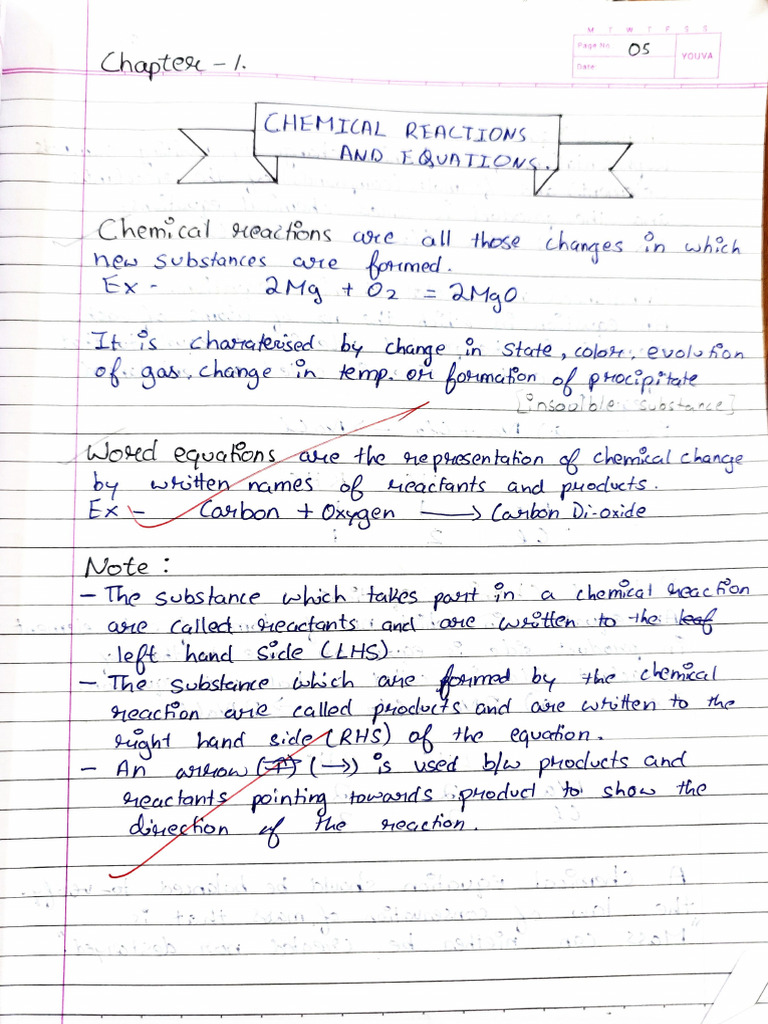 M T W T F S S
Page No. 05
YOUVA
Date:
Chapter - 1.
CHEMICAL REACTIONS
AND EQUATIONS.
Chemical reactions are all those changes in which
new substances are formed.
Ex - 2Mg + O2 = 2MgO
It is charaterised by change in state, color, evolution
of gas, change in temp. or formation of procipitate
[insoulble substance]
Word equations are the representation of chemical change
by written names of reactants and products.
Ex - Carbon + Oxygen → Carbon Di-oxide
Note :
- The substance which takes part in a chemical reaction
are called reactants and are written to the leaf
left hand side (LHS)
- The substance which are formed by the chemical
reaction are called products and are written to the
right hand side (RHS) of the equation.
- An arrow (→) (→) is used b/w products and
reactants pointing towards product to show the
direction of the reaction.